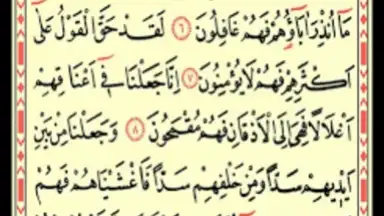 مَّا اُنْذِرَ اٰبَاؤُهُمْ فَهُمْ غَافِلُونَ ﴿٦﴾ لَقَدْ حَقَّ الْقَوْلُ عَلٰٓى
اَكْثَرِهِمْ فَهُمْ لَا يُؤْمِنُونَ ﴿٧﴾ اِنَّا جَعَلْنَا فِىٓ اَعْنَاقِهِمْ
اَغْلَالًا فَهِىَ اِلَى الْاَذْقَانِ فَهُمْ مُقْمَحُونَ ﴿٨﴾ وَجَعَلْنَا مِنْ بَيْنِ
اَيْدِيهِمْ سَدًّا وَمِنْ خَلْفِهِمْ سَدًّا فَاَغْشَيْنَاهُمْ فَهُمْ